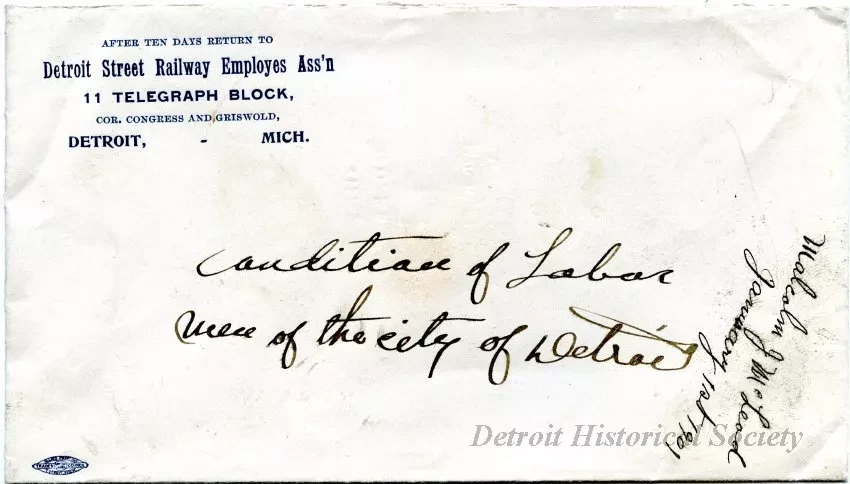 AFTER TEN DAYS RETURN TO
Detroit Street Railway Employes Ass'n
11 TELEGRAPH BLOCK,
COR. CONGRESS AND GRISWOLD,
DETROIT, - MICH.
Condition of Labor
men of the city of Detroit
Malcolm J McLeod
January 1st 1901
Detroit Historical Society